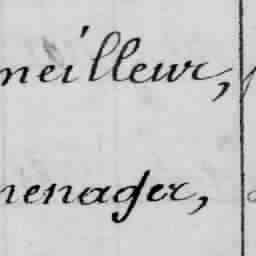 meilleur,
menager,